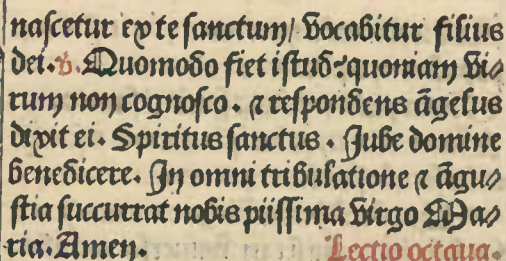 naſcetur ex te ſanctum/ vocabitur filius
dei. v. Quomodo fiet iſtud: quoniam vi⸗
rum non cognoſco. ⁊ reſpondens āgelus
dixit ei. Spiritus ſanctus. Jube domine
benedicere. In omni tribulatione ⁊ āgu⸗
ſtia ſuccurrat nobis piiſſima virgo Ma⸗
ria. Amen. Lectio octaua.